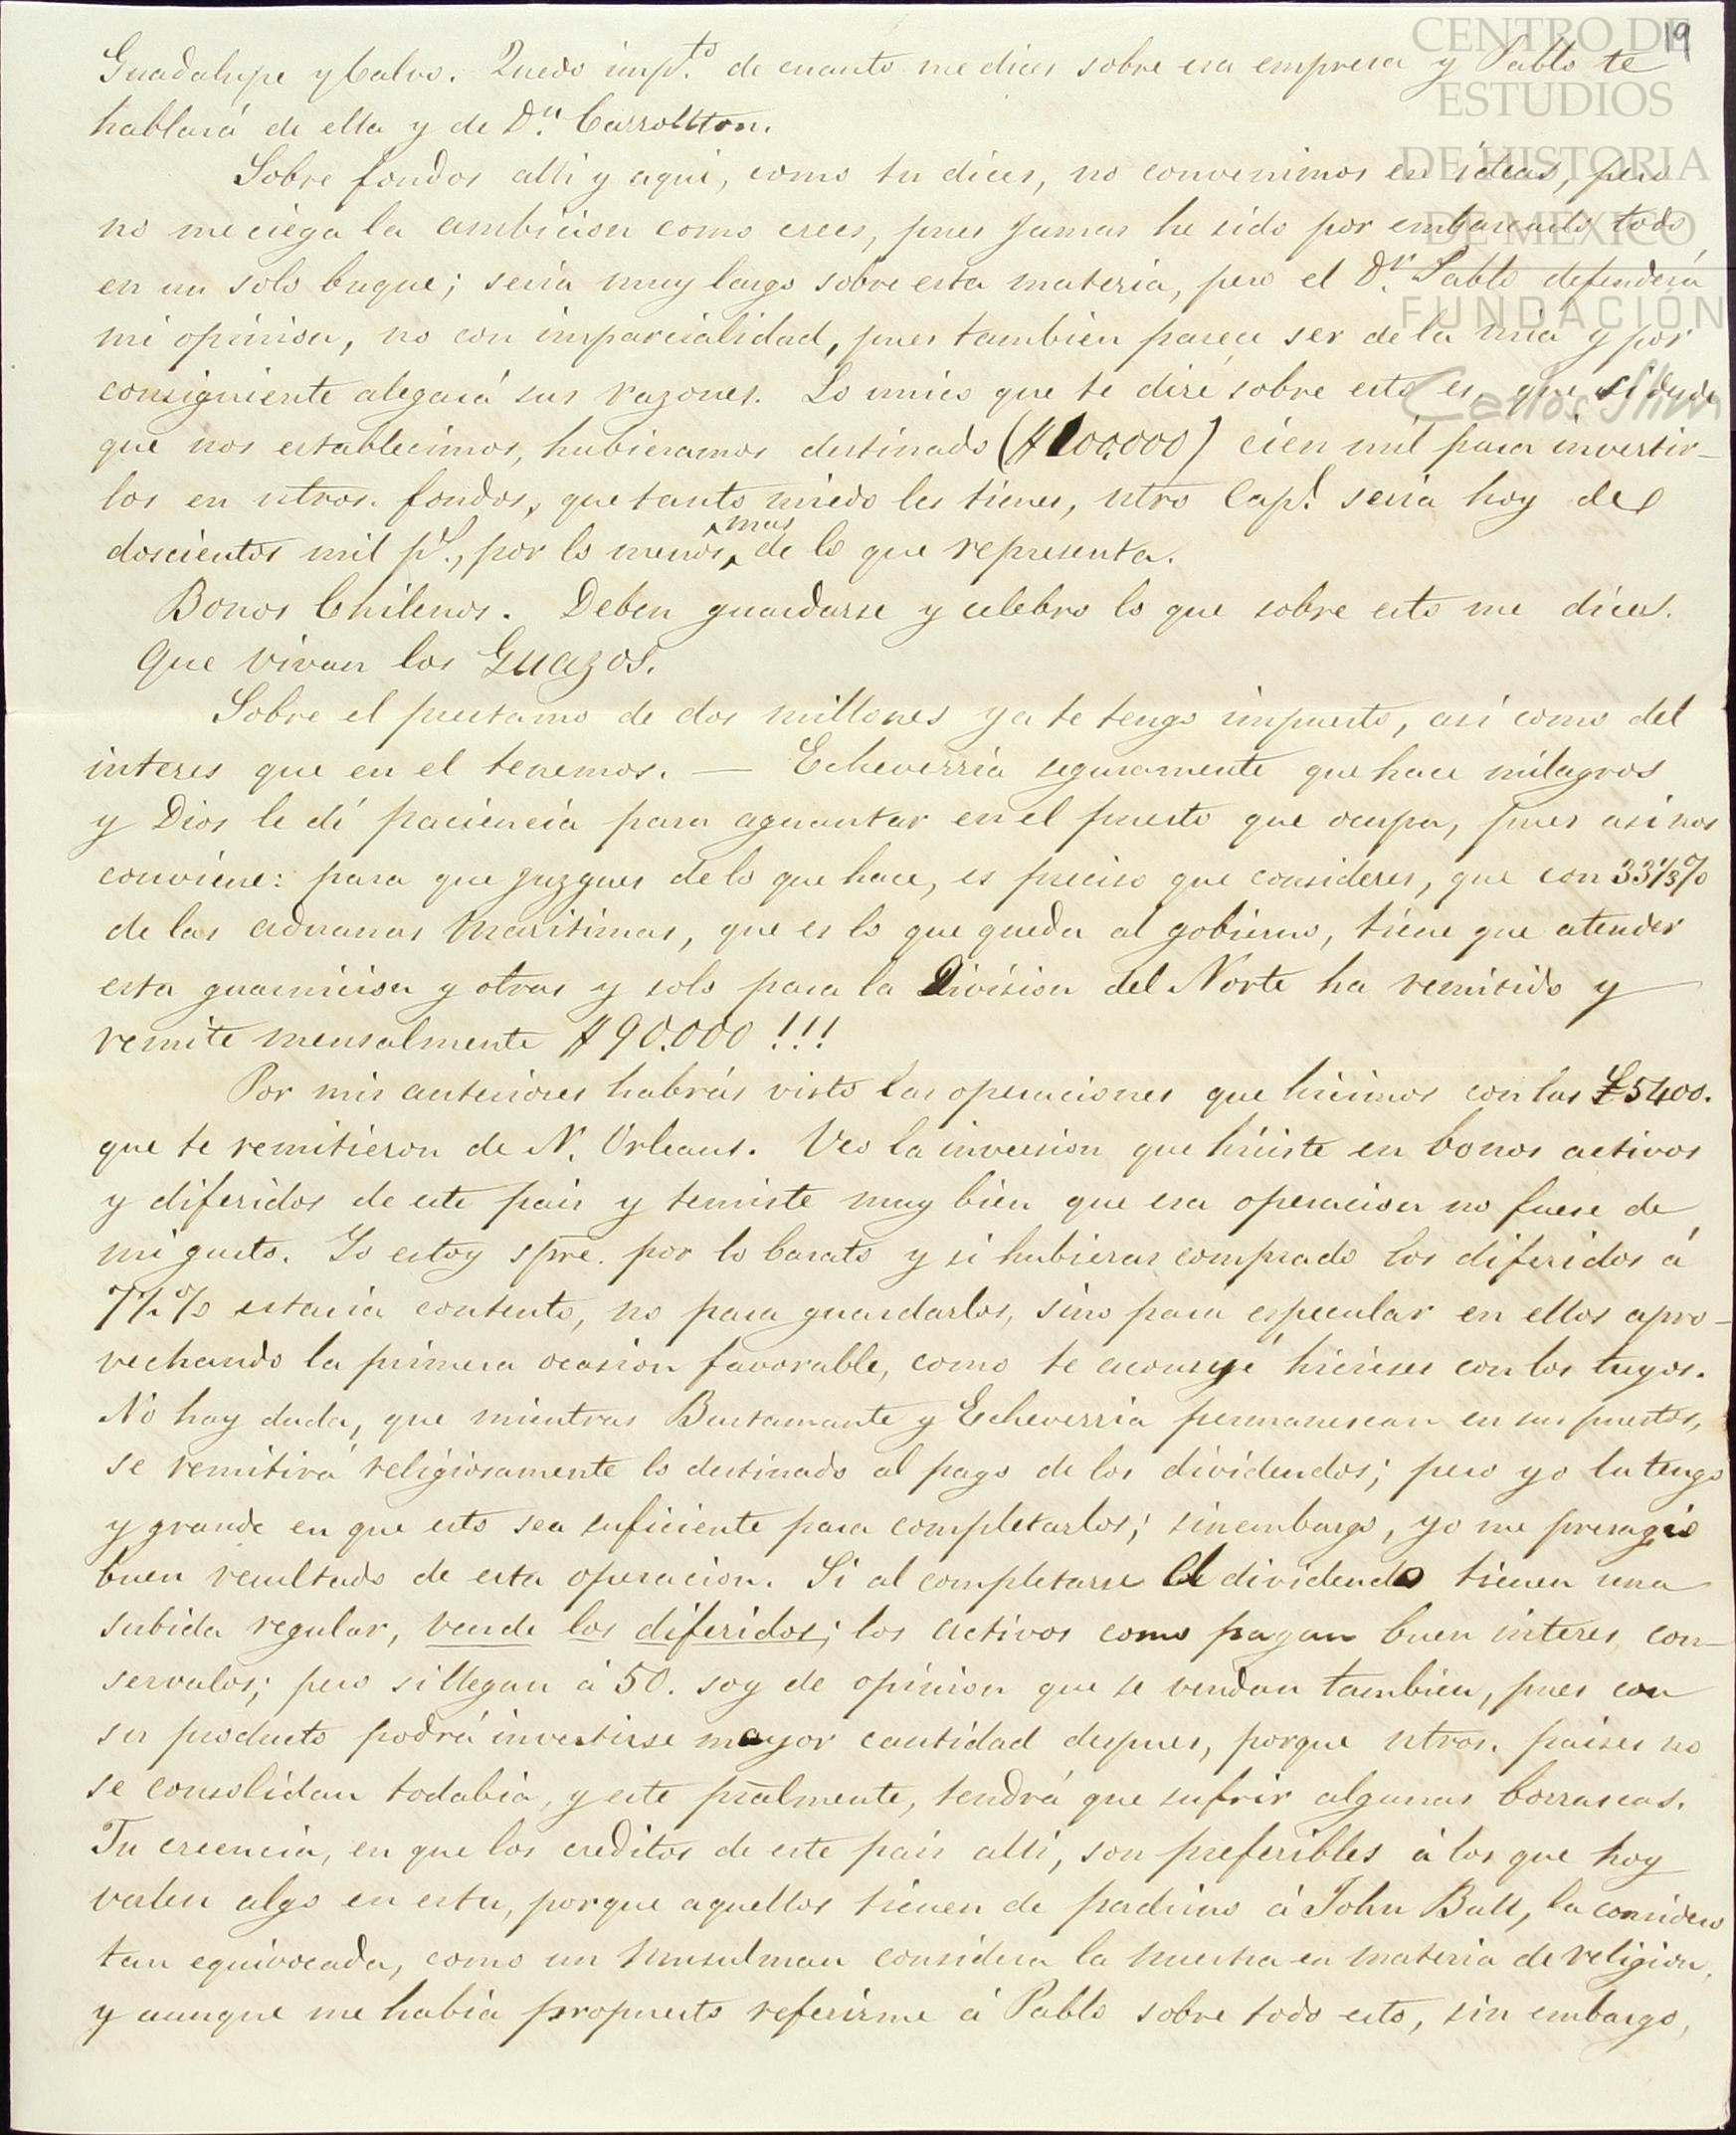 19
CENTRO DE
ESTUDIOS
DE HISTORIA
DE MÉXICO
FUNDACIÓN
Carlos Slim
Guadalupe y Calvo. Quedo imp.to de cuanto me dices sobre esa empresa y Pablo te
hablará de ella y de D.n Carrollton.
Sobre fondos alli y aqui, como tu dices, no convenimos en ideas, pero
no me ciega la ambicion como crees, pues jamas he sido por embarcarlo todo
en un solo buque; seria muy largo sobre esta materia, pero el D.r Pablo defenderá
mi opinion, no con imparcialidad, pues tambien parece ser de la mia y por
consiguiente alegará sus razones. Lo unico que te diré sobre esto es, que si desde
que nos establecimos, hubieramos destinado ($100.000) cien mil para invertir-
los en ntros. fondos, que tanto miedo les tienes, ntro Cap.l seria hoy de
doscientos mil p.s, por lo menos, mas de lo que representa.
Bonos Chilenos. Deben guardarse y celebro lo que sobre esto me dices.
Que vivan los Guazos.
Sobre el prestamo de dos millones ya te tengo impuesto, asi como del
interes que en el tenemos. — Echeverria seguramente que hace milagros
y Dios le dé paciencia para aguantar en el puesto que ocupa, pues asi nos
conviene: para que juzgues de lo que hace, es preciso que consideres, que con 33 1/3 %
de las aduanas maritimas, que es lo que queda al gobierno, tiene que atender
esta guarnicion y otras y solo para la Division del Norte ha remitido y
remite mensalmente $90.000 !!!
Por mis anteriores habrás visto las operaciones que hicimos con las £5400.
que te remitieron de N. Orleans. Veo la inversion que hiciste en bonos activos
y diferidos de este pais y temiste muy bien que esa operacion no fuese de
mi gusto. Yo estoy spre. por lo barato y si hubieras comprado los diferidos á
7½ % estaria contento, no para guardarlos, sino para especular en ellos apro-
vechando la primera ocasion favorable, como te aconsejé hicieses con los tuyos.
No hay duda, que mientras Bustamante y Echeverria permanescan en sus puestos,
se remitirá religiosamente lo destinado al pago de los dividendos; pero yo la tengo
y grande en que esto sea suficiente para completarlos; sinembargo, yo me presagio
buen resultado de esta operacion. Si al completarse el dividendo tienen una
subida regular, vende los diferidos; los activos como pagan buen interes con-
servalos; pero si llegan á 50. soy de opinion que se vendan tambien, pues con
su producto podrá invertirse mayor cantidad despues, porque ntros. paises no
se consolidan todabia, y este pralmente, tendrá que sufrir algunas borrascas.
Tu creencia, en que los creditos de este pais alli, son preferibles á los que hoy
valen algo en esta, porque aquellos tienen de padrino á John Bull, la considero
tan equivocada, como un musulman considera la nuestra en materia de religion,
y aunque me habia propuesto referirme á Pablo sobre todo esto, sin embargo,